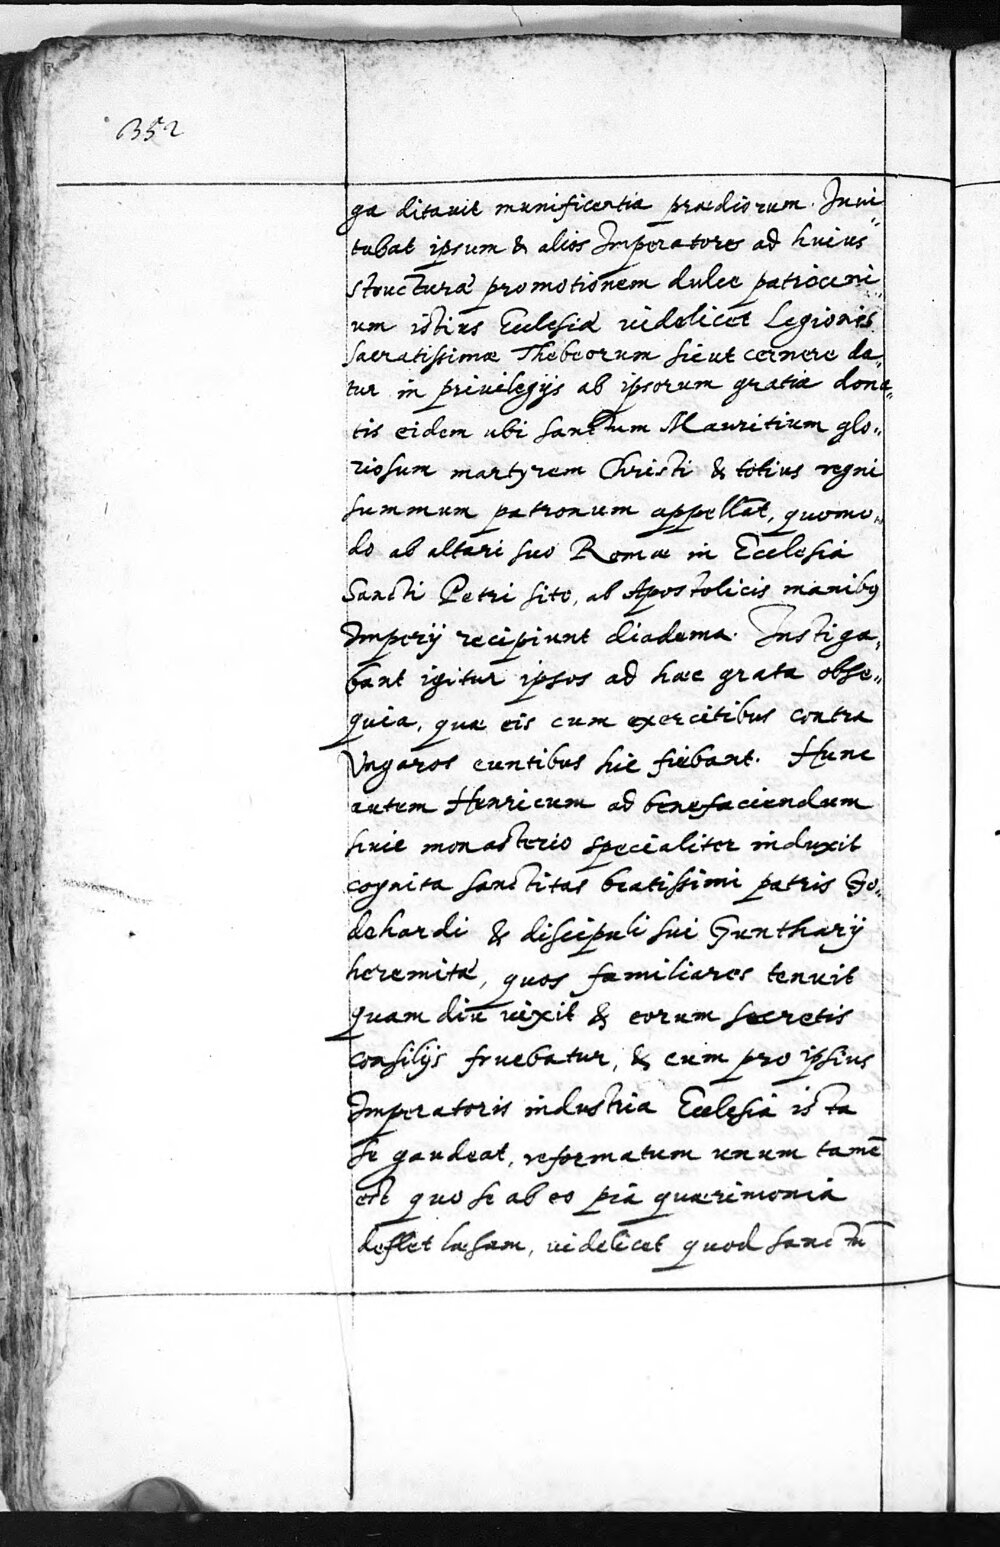 352
ga ditauit munificentia prædiorum. Inui„
tabat ipsum & alios Imperatores ad huius
structuræ promotionem dulce patrocini„
um istius Ecclesiæ videlicet Legionis
sacratissimæ Thebeorum sicut cernere da„
tur in priuilegijs ab ipsorum gratia dona„
tis eidem ubi sanctum Mauritium glo„
riosum martyrem Christi & totius regni
summum patronum appellāt, quomo„
do ab altari suo Romæ in Ecclesia
Sancti Petri sito, ab Apostolicis manibꝰ
Imperij recipiunt diadema. Instiga„
bant igitur ipsos ad hæc grata obse„
quia, quæ eis cum exercitibus contra
Vngaros euntibus hic fiebant. Hunc
autem Henricum ad benefaciendum
huic monasterio specialiter induxit
cognita sanctitas beatissimi patris Go„
dehardi & discipuli sui Guntharij
heremitæ, quos familiares tenuit
quam diu vixit & eorum secretis
consilijs fruebatur, & cum pro ipsius
Imperatoris industria Ecclesia ista
se gaudeat, reformatum unum tamē
est quo se ab eo pia quærimonia
deflet læsam, videlicet quod sanctū